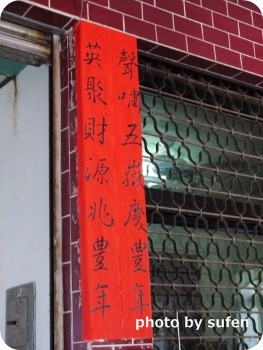 聲嘯五嶽慶豐年
英聚財源兆豐年
photo by sufen